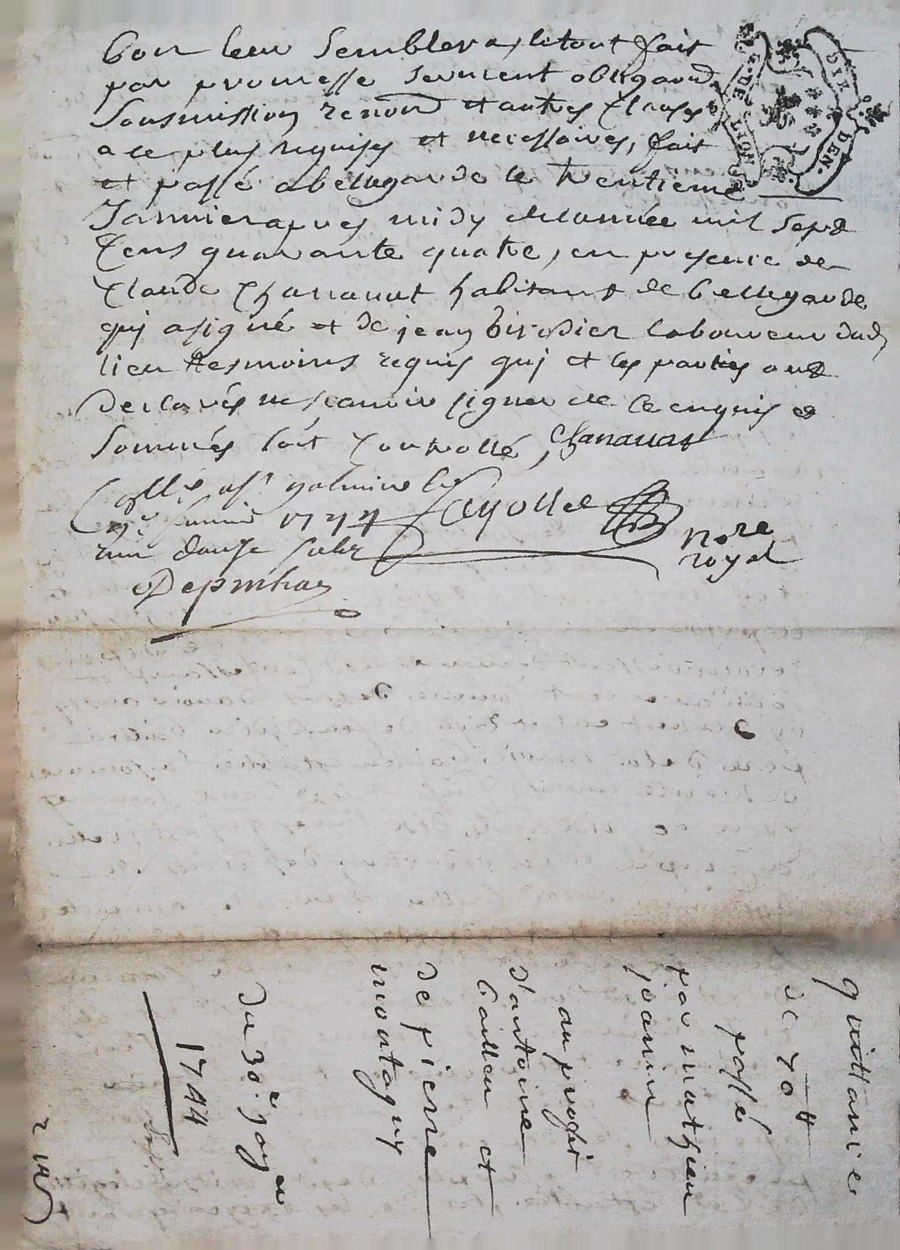 bon leur semblera, le tout fait
par promesse serment obligaon
soumission renond et autres clauses
a ce plus requises et necessaires, fait
et passé a bellegarde le trentieme
Janvier apres midy de l'année mil sept
cens quarante quatre, en presence de
claude chanauat habitant de bellegarde
qui a signé et de jean birodier laboureur dud
lieu tesmoins requis qui et les parties ont
declarés ne scavoir signer de ce enquis et
sommés soit controllé, Chanauat
Collé a st galmier le
janvier 1744
reçu douze sols
Depinhac
Fayolle
Nore
royal
GEN. DE LION
DIX DEN.
quittance
de 70 tt
passé
par mathieu
joanin
au profit
d'antoine
et
de pierre
montaguy
du 30e janer
1744